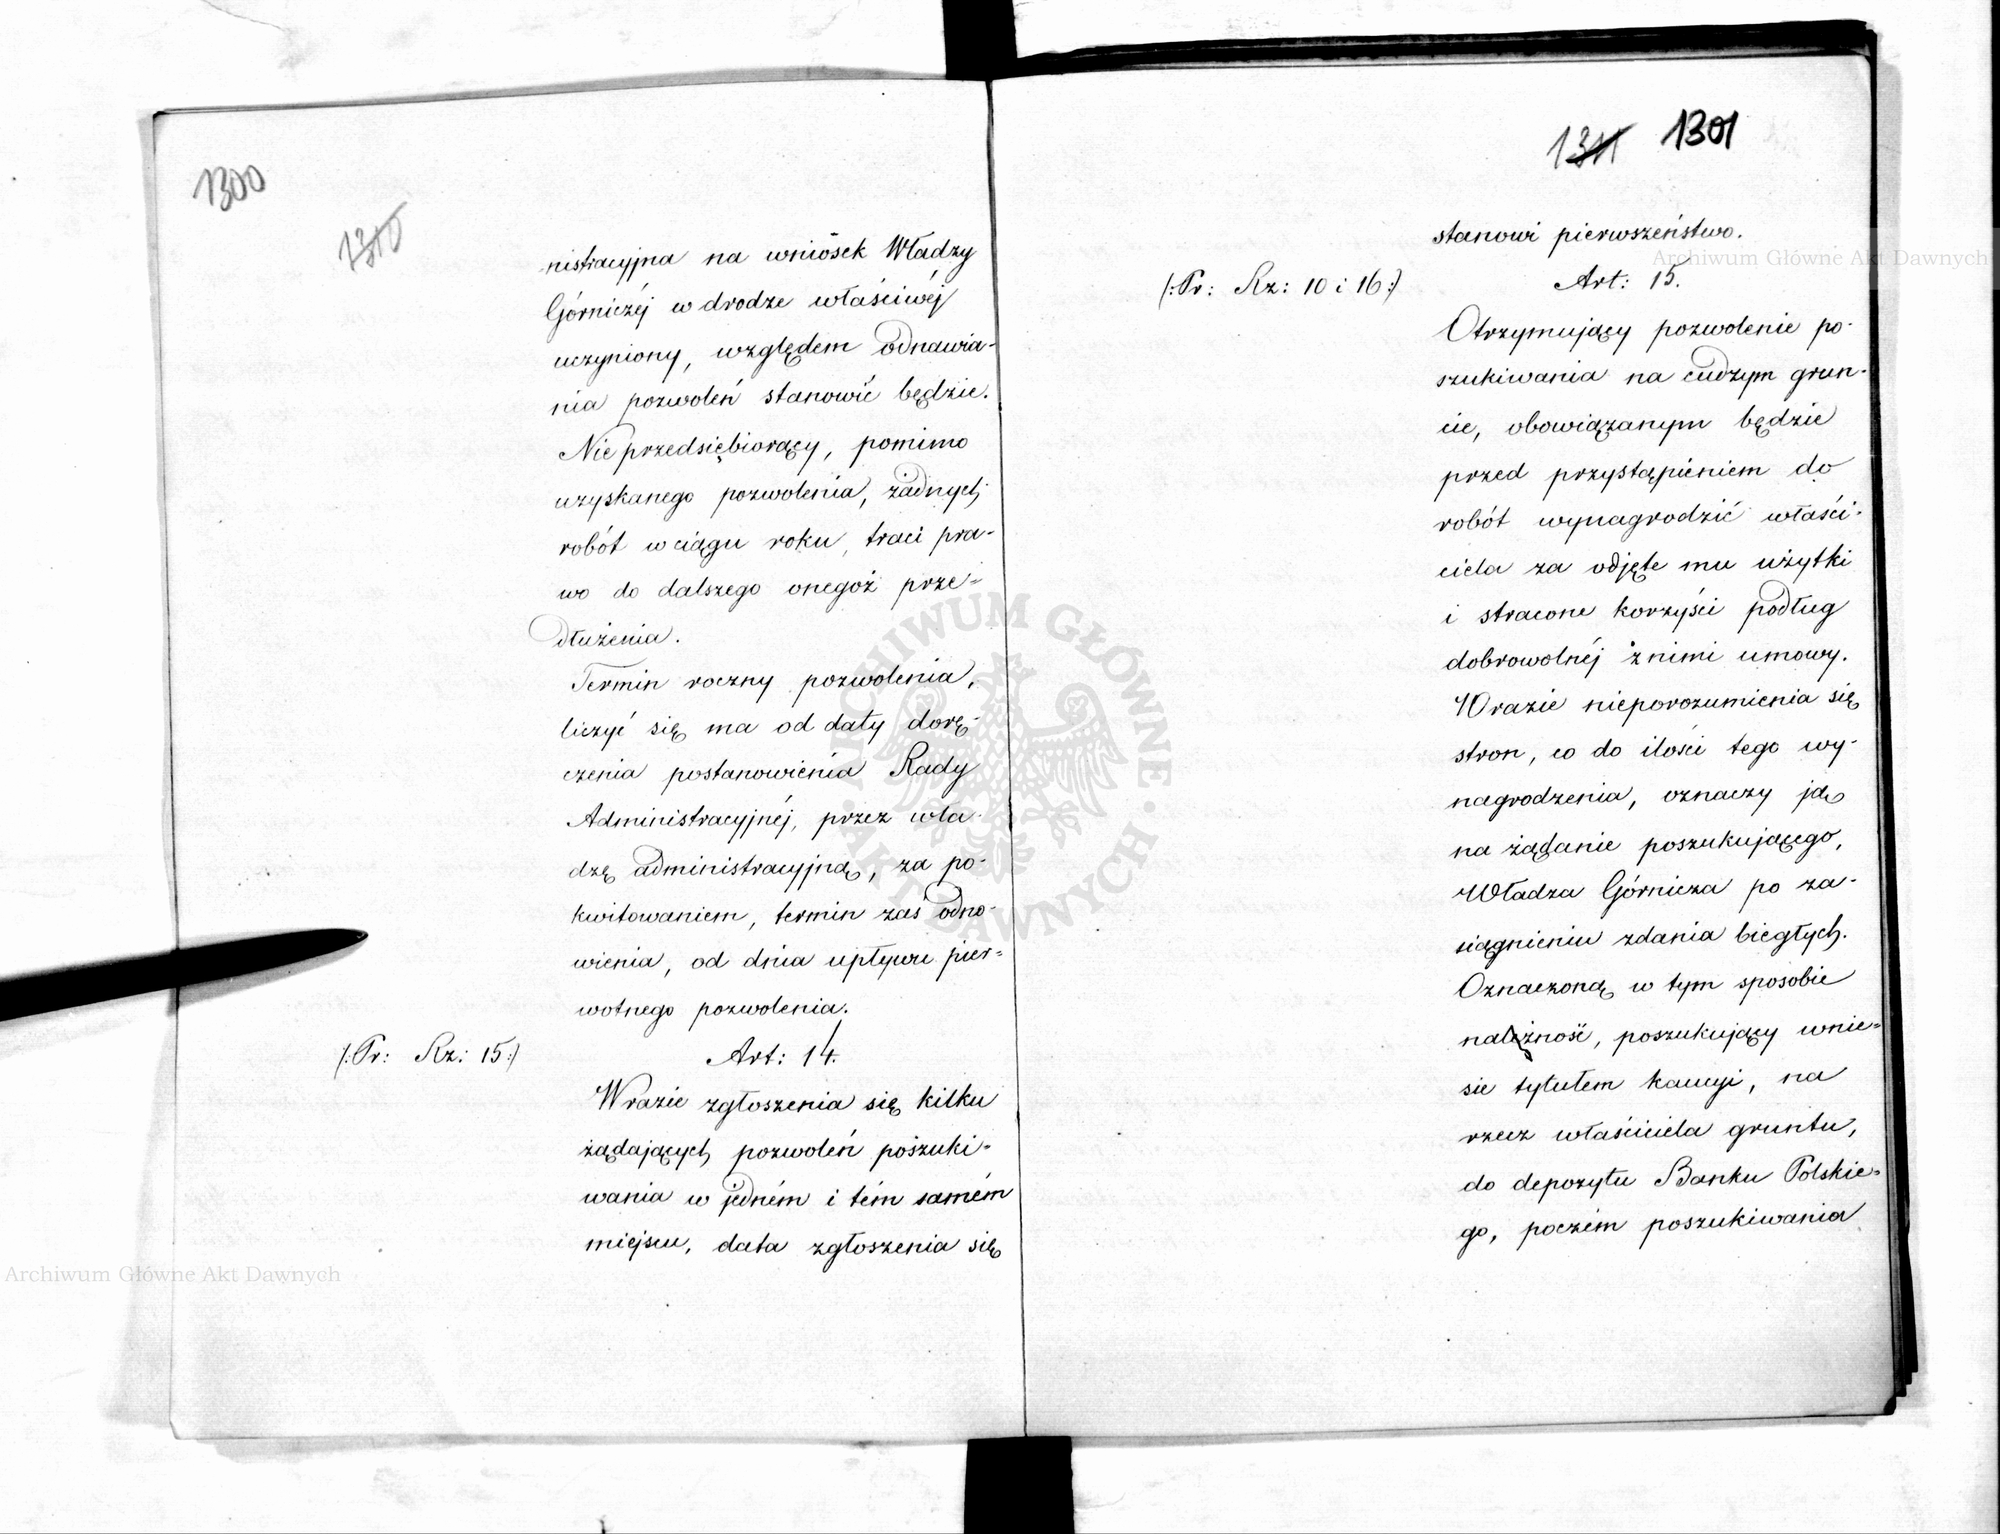 1300
1310
nistracyjna na wniosek Władzy
Górniczéj w drodze właściwéj
uczyniony, względem odnawia-
nia pozwoleń stanowić będzie.
Nie przedsiębiorący, pomimo
uzyskanego pozwolenia, żadnych
robót w ciągu roku, traci pra-
wo do dalszego onegoż prze-
dłużenia.
Termin roczny pozwolenia,
liczyć się ma od daty dorę-
czenia postanowienia Rady
Administracyjnéj, przez wła-
dzę administracyjną, za po-
kwitowaniem, termin zaś odno-
wienia, od dnia upływu pier=
wotnego pozwolenia.
(:Pr: Rz: 15:)
Art: 14.
W razie zgłoszenia się kilku
żądających pozwoleń poszuki-
wania w jedném i tém samém
miejscu, data zgłoszenia się
1311 1301
stanowi pierwszeństwo.
(:Pr: Rz: 10 i 16:)
Art: 15.
Otrzymujący pozwolenie po-
szukiwania na cudzym grun-
cie, obowiązanym będzie
przed przystąpieniem do
robót wynagrodzić właści-
ciela za odjęte mu użytki
i stracone korzyści podług
dobrowolnéj z nimi umowy.
W razie nieporozumienia się
stron, co do ilości tego wy-
nagrodzenia, oznaczy ją
na żądanie poszukującego,
Władza Górnicza po za-
siągnieniu zdania biegłych.
Oznaczoną w tym sposobie
należność, poszukujący wnie=
sie tytułem kaucyi, na
rzecz właściciela gruntu,
do depozytu Banku Polskie=
go, poczém poszukiwania
ARCHIWUM GŁÓWNE AKT DAWNYCH
Archiwum Główne Akt Dawnych
Archiwum Główne Akt Dawnych